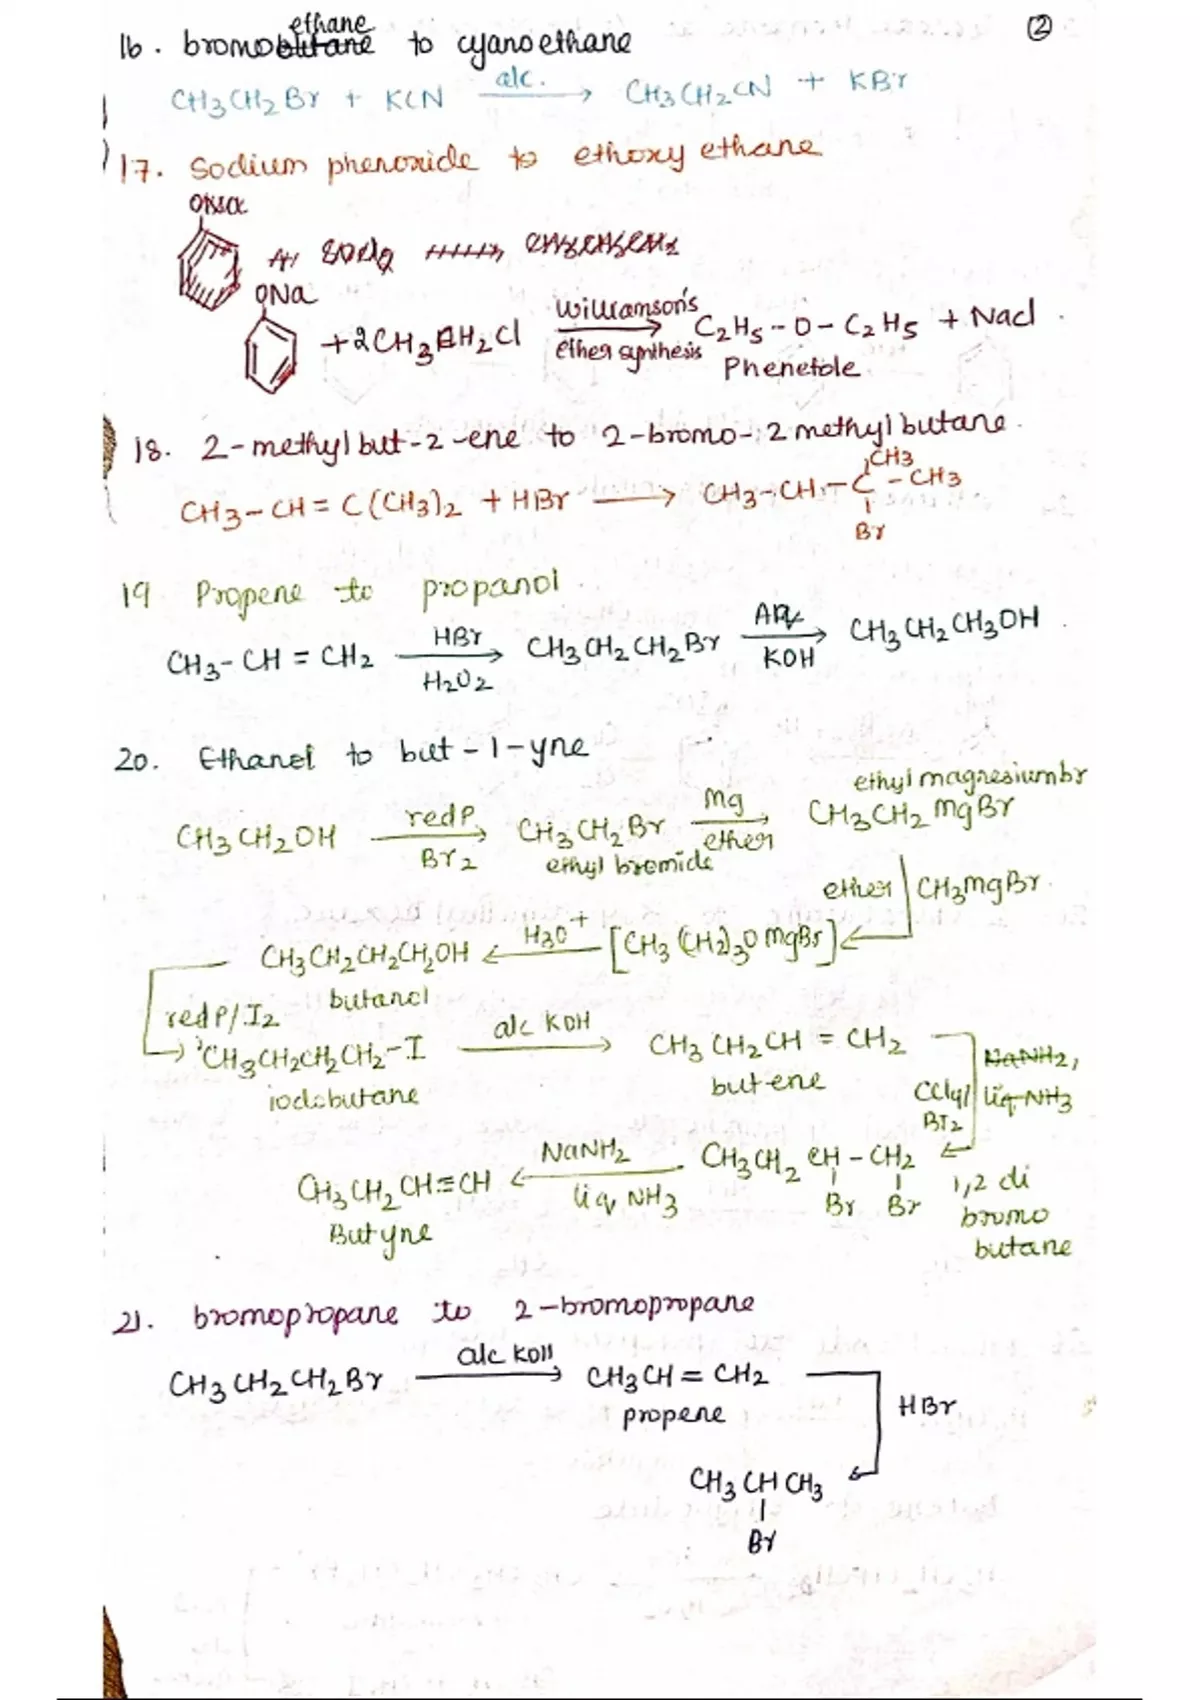 ②
ethane
16. bromobutane to cyanoethane
CH3CH2Br + KCN alc. → CH3CH2CN + KBr
17. Sodium phenoxide to ethoxy ethane
ONa
ONa
+2CH3CH2Cl Williamson's ether synthesis → C2H5-O-C2H5 + Nacl.
Phenetole
18. 2-methyl but-2-ene to 2-bromo-2 methyl butane.
CH3-CH=C(CH3)2 + HBr → CH3-CH-C-CH3
CH3
Br
19 Propene to propanol.
CH3-CH=CH2 HBr H2O2 → CH3CH2CH2Br Aq KOH → CH3CH2CH3OH.
20. Ethanol to but-1-yne
ethyl magnesium br
CH3CH2OH red P Br2 → CH3CH2Br Mg ether → CH3CH2MgBr
ethyl bromide
ether CH3MgBr.
CH3CH2CH2CH2OH ← H3O+ [CH3(CH2)3OMgBr] ←
butanol
red P/I2
→ CH3CH2CH2CH2-I alc KOH → CH3CH2CH=CH2
iodobutane
butene
NaNH2,
CCl4/ liq NH3
Br2
CH3CH2CH≡CH ← NaNH2 liq NH3 CH3CH2CH-CH2 ←
Br Br
Butyne
1,2 di
bromo
butane
21. bromopropane to 2-bromopropane
CH3CH2CH2Br alc KOH → CH3CH=CH2
propene
HBr
CH3CHCH3 ←
Br